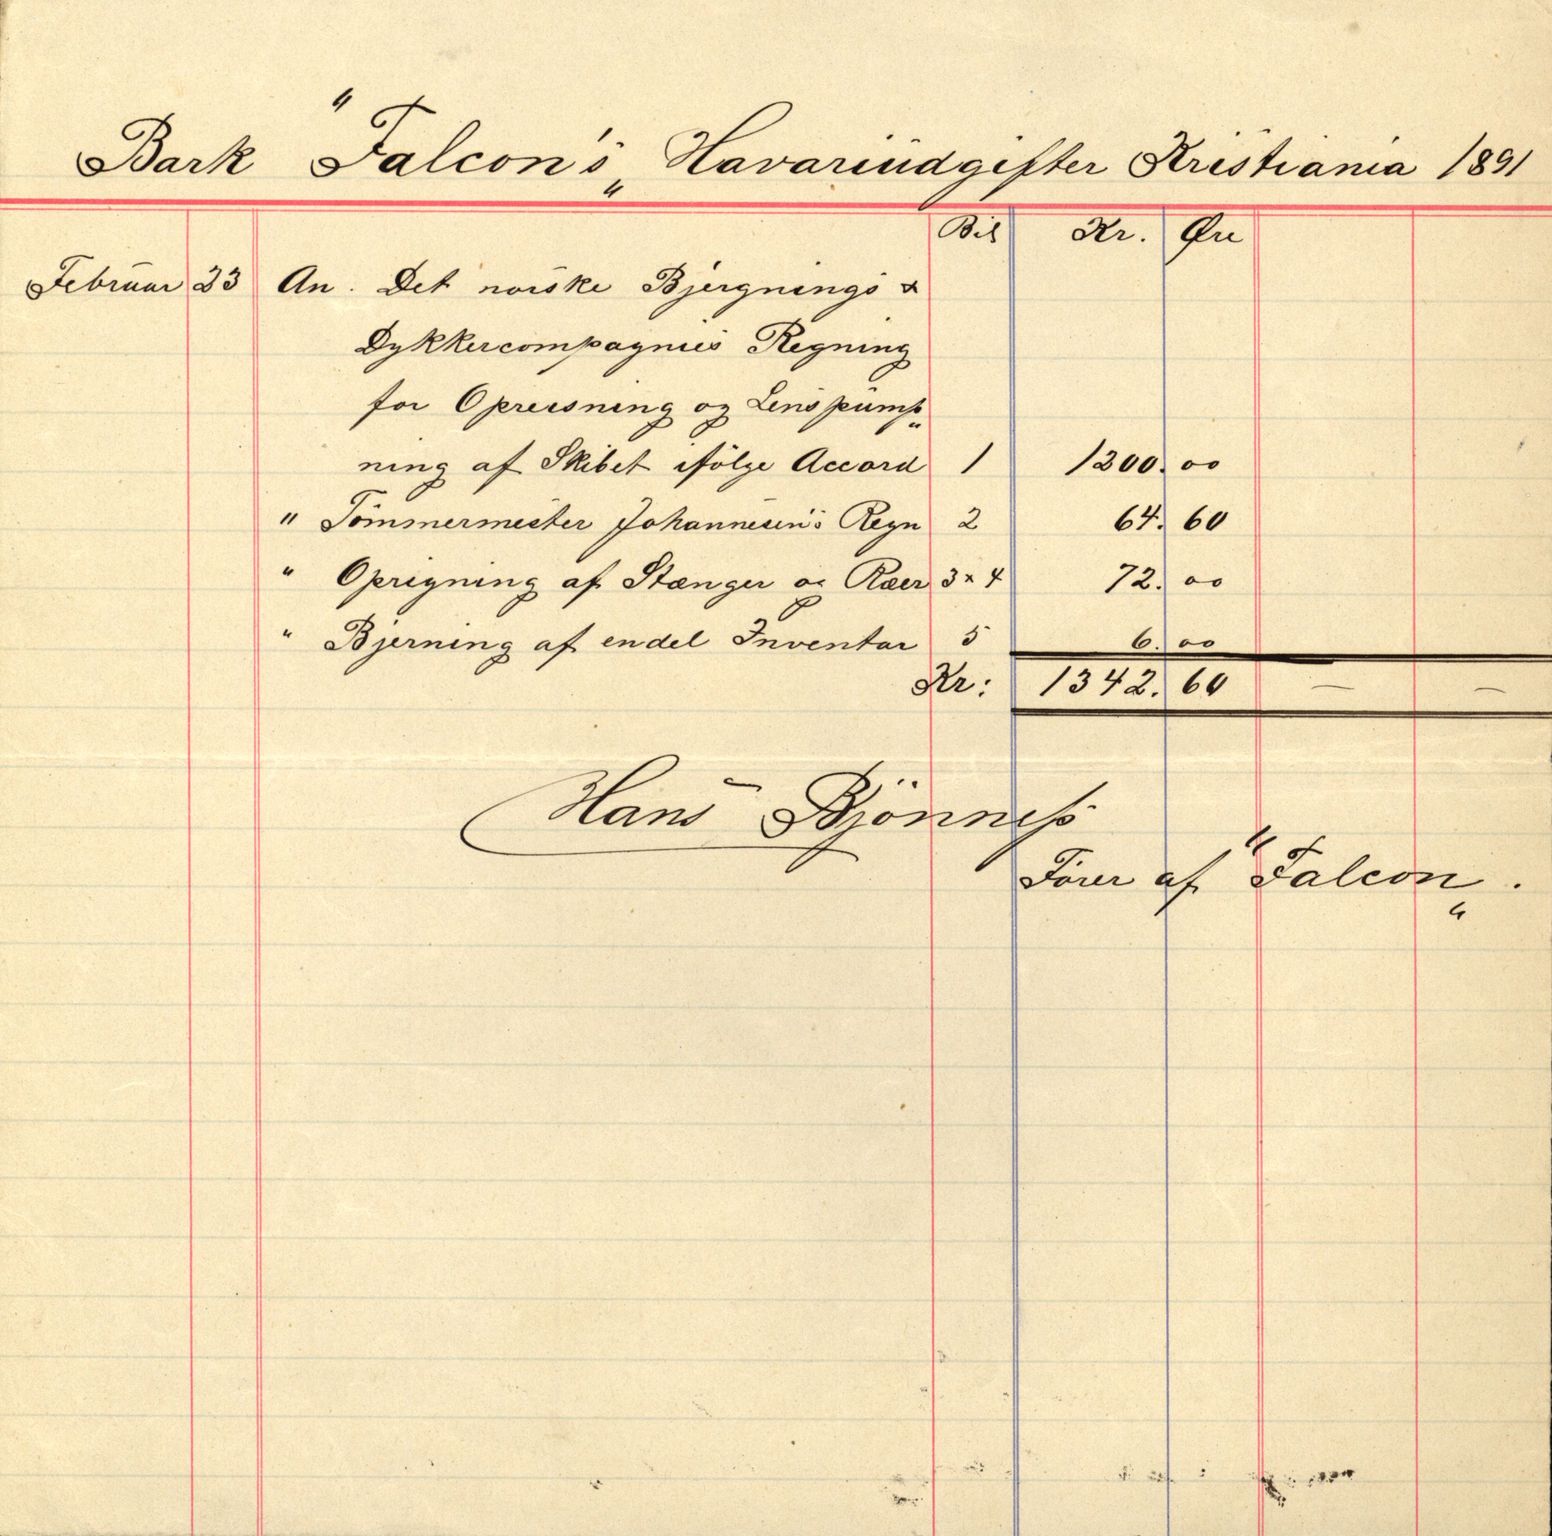 Bark "Falcon's" Havariudgifter Kristiania 1891
Bil Kr. Øre
Februar 23 An. Det norske Bjergnings &
Dykkercompagnies Regning
for Opreisning og Lenspump=
ning af Skibet ifölge Accord 1 1200. 00
" Tömmermester Johannesen's Regn 2 64. 60
" Oprigning af Stænger og Ræer 3 & 4 72. 00
" Bjerning af endel Inventar 5 6. 00
Kr: 1342. 60 — —
Hans Bjönness
Förer af "Falcon".